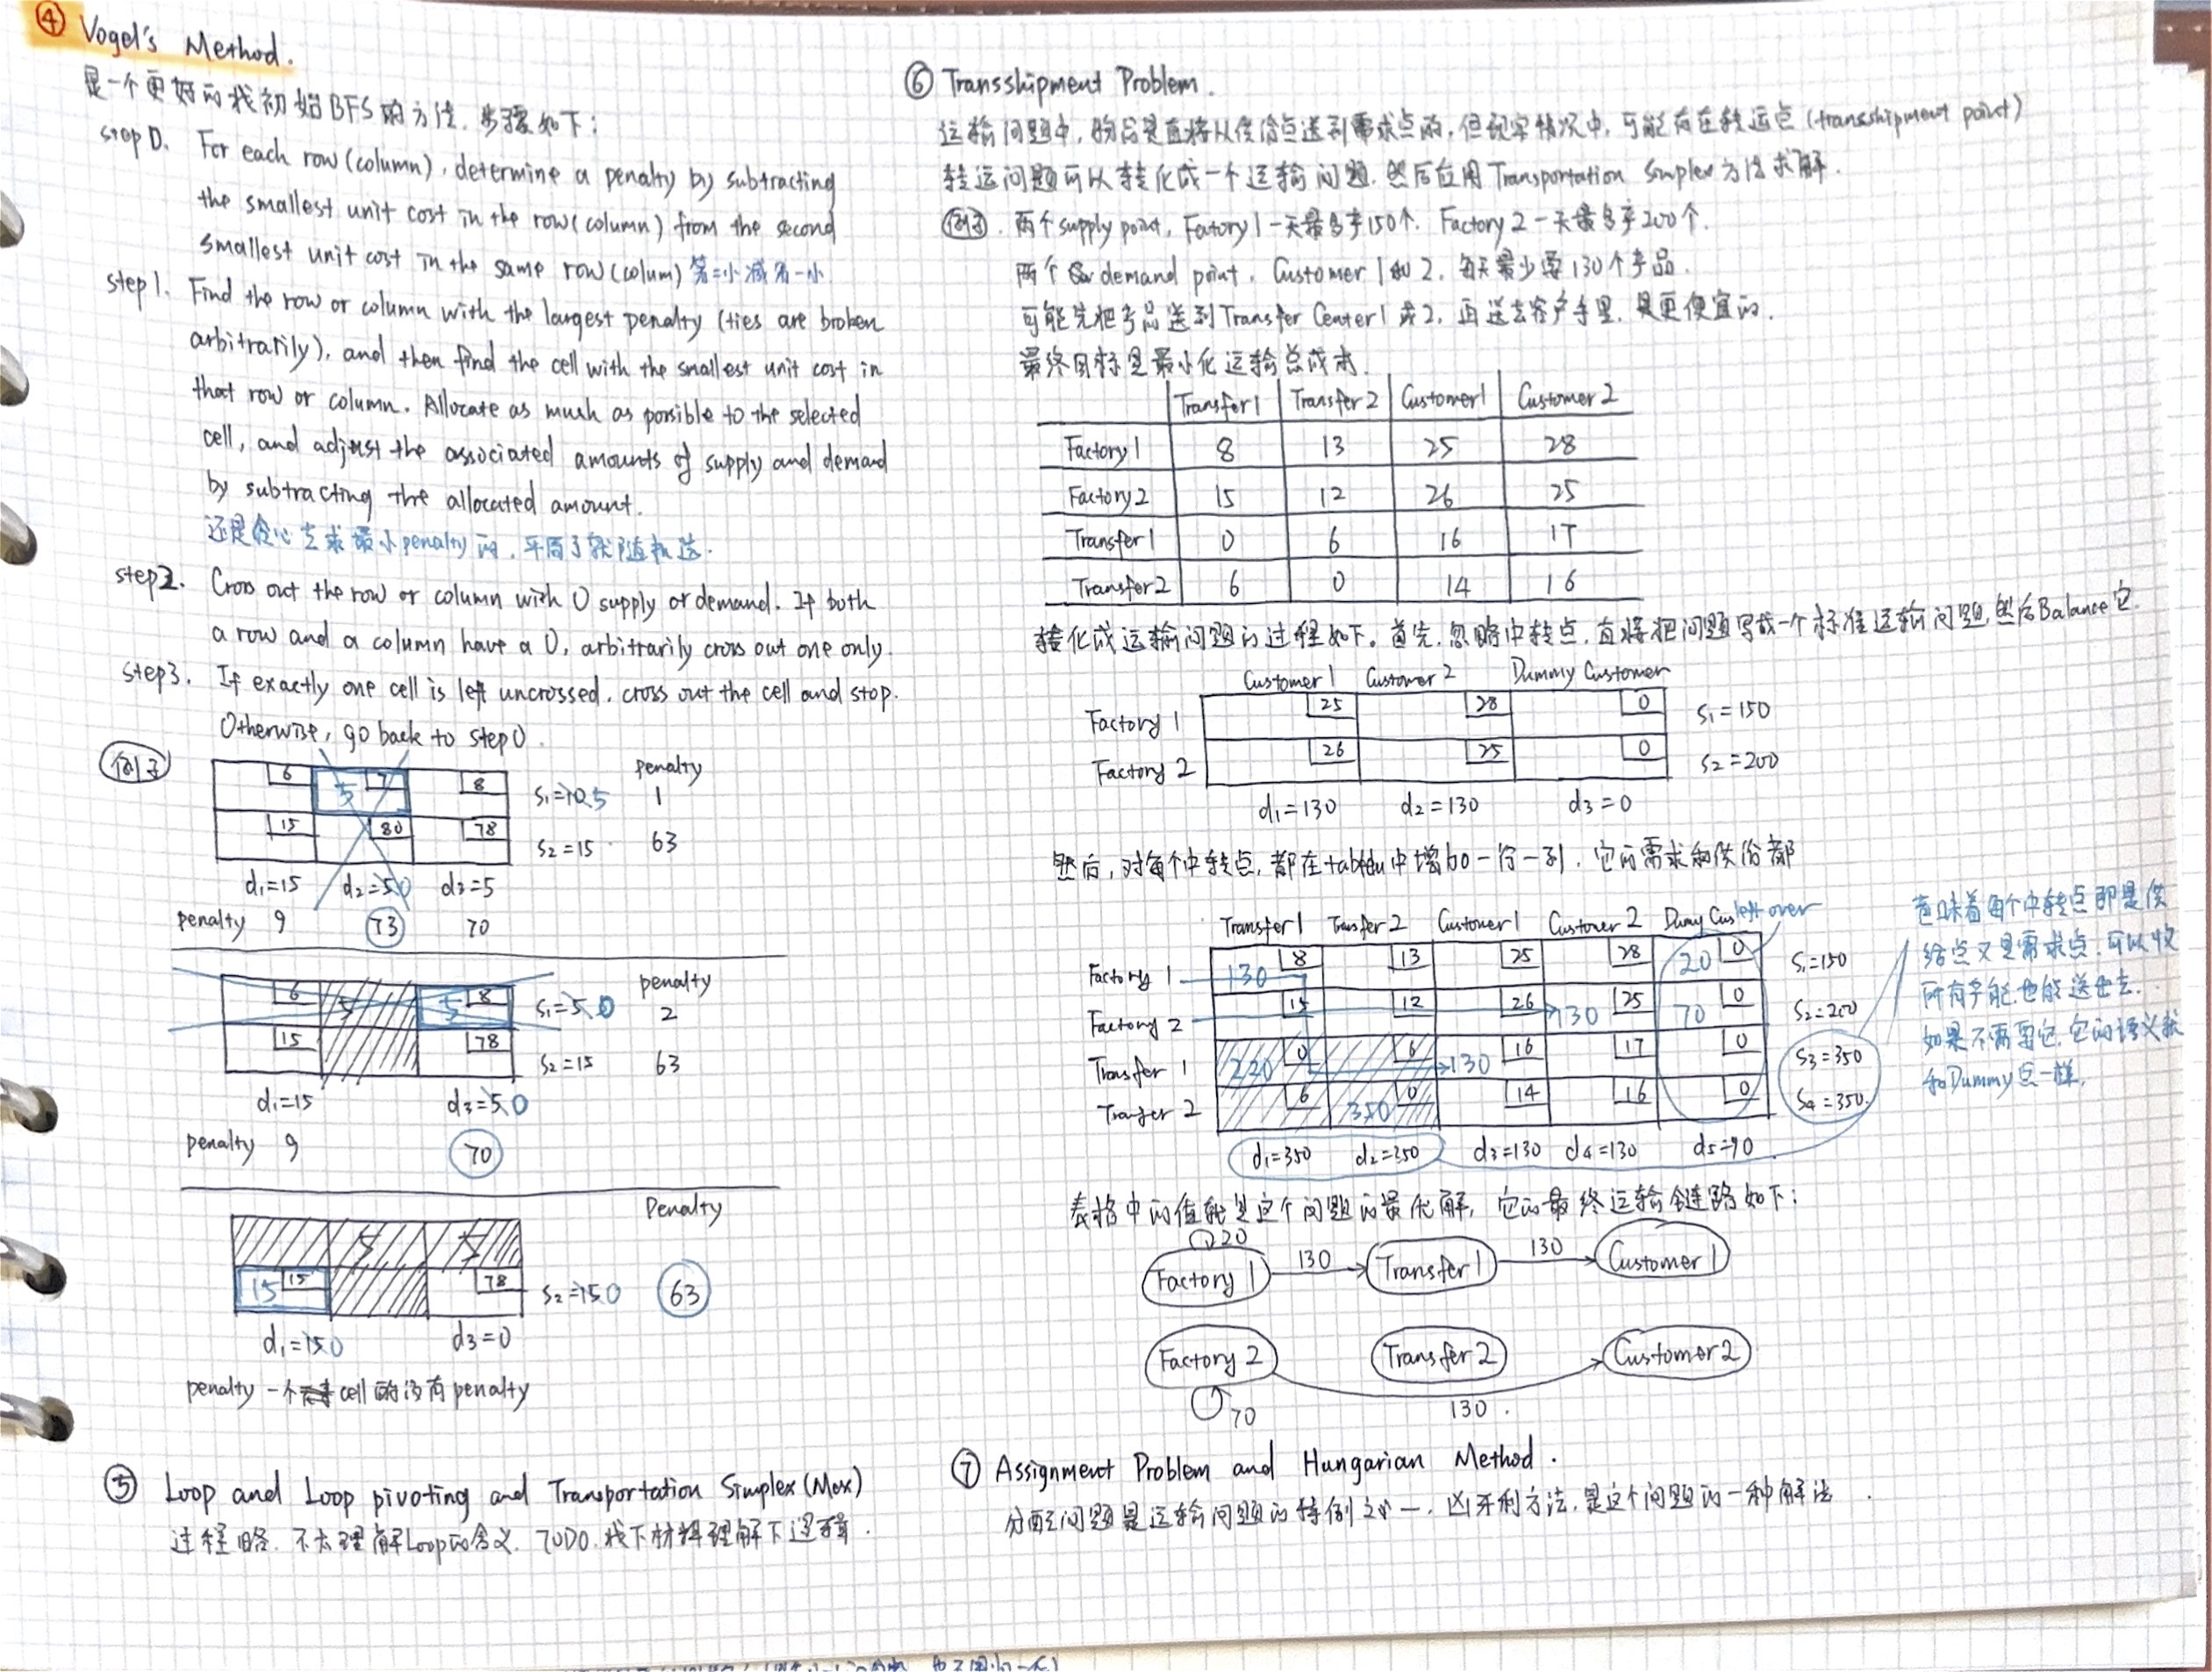 ④ Vogel's Method.
是一个更好的找初始BFS的方法. 步骤如下:
step0. For each row (column), determine a penalty by subtracting
the smallest unit cost in the row (column) from the second
smallest unit cost in the same row (colum) 第二小减第一小
step1. Find the row or column with the largest penalty (ties are broken
arbitrarily), and then find the cell with the smallest unit cost in
that row or column. Allocate as much as possible to the selected
cell, and adjust the associated amounts of supply and demand
by subtracting the allocated amount.
还是贪心去求最小penalty的, 平局了就随机选.
step2. Cross out the row or column with 0 supply or demand. If both
a row and a column have a 0, arbitrarily cross out one only.
step3. If exactly one cell is left uncrossed, cross out the cell and stop.
Otherwise, go back to step0.
例子
penalty
6 5 7 8 S₁=10 5 1
15 80 78 S₂=15 63
d₁=15 d₂=5 0 d₃=5
penalty 9 73 70
penalty
6 5 5 8 S₁=5 0 2
15 78 S₂=15 63
d₁=15 d₃=5 0
penalty 9 70
Penalty
5 5
15 15 78 S₂=15 0 63
d₁=15 0 d₃=0
penalty 一个cell的没有penalty
⑤ Loop and Loop pivoting and Transportation Simplex (Max)
过程略. 不太理解Loop的含义. TODO. 找下材料理解下逻辑.
⑥ Transshipment Problem.
运输问题中, 物品是直接从供给点送到需求点的, 但现实情况中, 可能存在转运点 (transshipment point)
转运问题可以转化成一个运输问题. 然后应用 Transportation Simplex 方法求解.
例子. 两个supply point, Factory 1 一天最多产150个. Factory 2 一天最多产200个.
两个 demand point, Customer 1 和 2, 每天最少要130个产品.
可能先把产品送到Transfer Center 1 或 2, 再送去客户手里, 是更便宜的.
最终目标是最小化运输总成本.
Transfer 1 Transfer 2 Customer 1 Customer 2
Factory 1 8 13 25 28
Factory 2 15 12 26 25
Transfer 1 0 6 16 17
Transfer 2 6 0 14 16
转化成运输问题的过程如下。首先, 忽略中转点, 直接把问题写成一个标准运输问题, 然后Balance它.
Customer 1 Customer 2 Dummy Customer
Factory 1 25 28 0 S₁=150
Factory 2 26 25 0 S₂=200
d₁=130 d₂=130 d₃=0
然后, 对每个中转点, 都在tableau中增加一行一列, 它的需求和供给都
Transfer 1 Transfer 2 Customer 1 Customer 2 Dumy Cus left over
Factory 1 130 8 13 25 28 20 0 S₁=150
Factory 2 15 12 26 130 25 70 0 S₂=200
Transfer 1 220 0 6 130 16 17 0 S₃=350
Tranfer 2 6 350 0 14 16 0 S₄=350.
d₁=350 d₂=350 d₃=130 d₄=130 d₅=90.
意味着每个中转点即是供
给点又是需求点, 可以收
所有产能也能送出去.
如果不需要它, 它的语义就
和Dummy点一样.
表格中的值就是这个问题的最优解, 它的最终运输链路如下:
20
Factory 1 130 Transfer 1 130 Customer 1
Factory 2 Transfer 2 Customer 2
70 130.
⑦ Assignment Problem and Hungarian Method.
分配问题是运输问题的特例之一, 匈牙利方法, 是这个问题的一种解法.